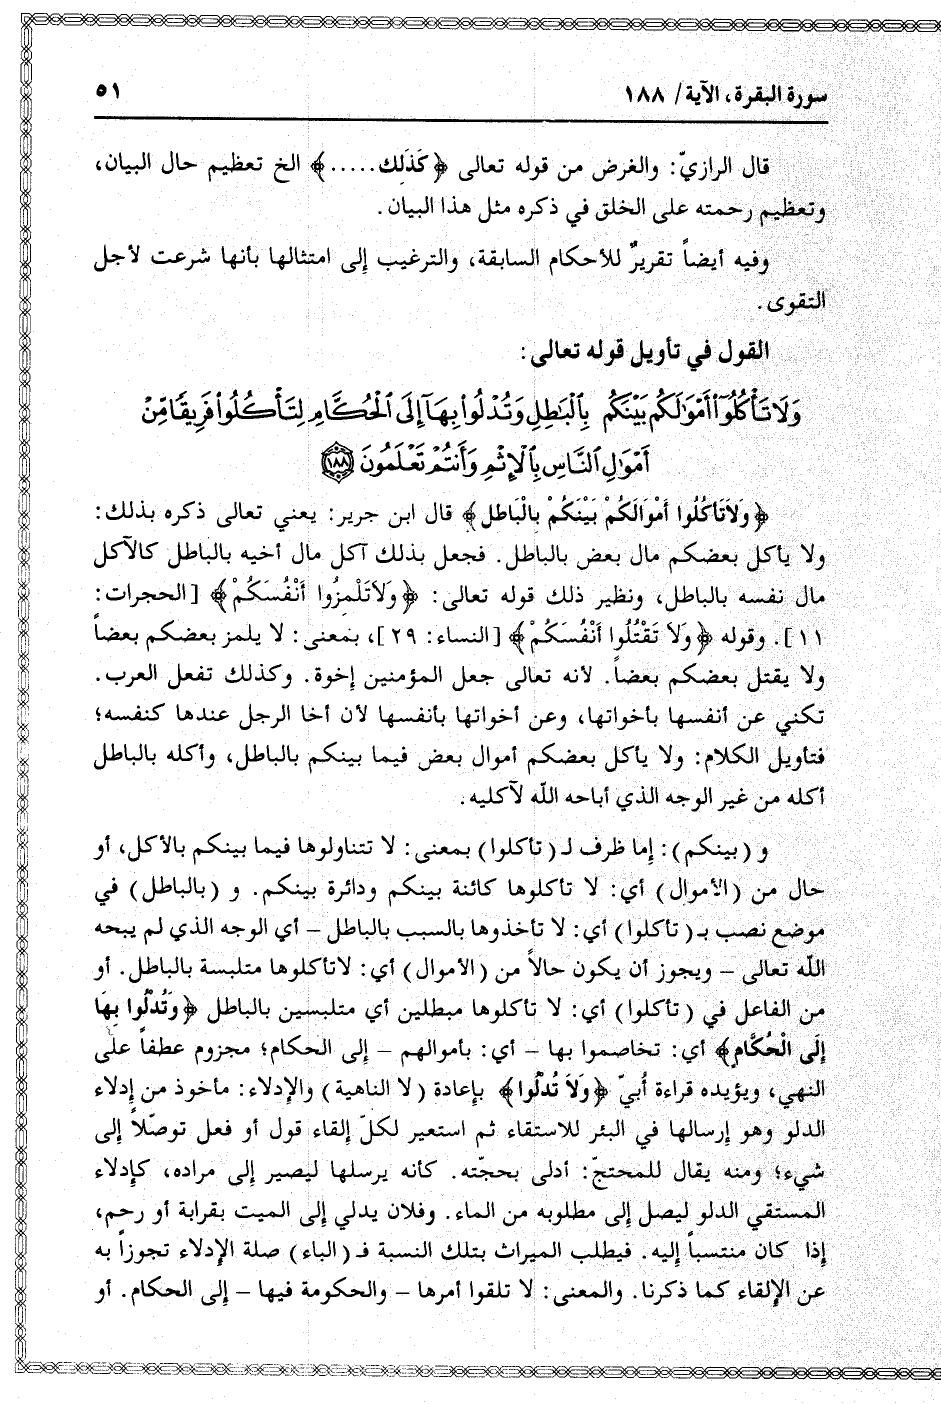 سورة البقرة، الآية/ ١٨٨ ٥١
قال الرازيّ: والغرض من قوله تعالى ﴿كَذَلِكَ.....﴾ الخ تعظيم حال البيان،
وتعظيم رحمته على الخلق في ذكره مثل هذا البيان.
وفيه أيضاً تقريرٌ للأحكام السابقة، والترغيب إلى امتثالها بأنها شرعت لأجل
التقوى.
القول في تأويل قوله تعالى:
وَلَا تَأْكُلُوٓا۟ أَمْوَٰلَكُم بَيْنَكُم بِٱلْبَٰطِلِ وَتُدْلُوا۟ بِهَآ إِلَى ٱلْحُكَّامِ لِتَأْكُلُوا۟ فَرِيقًا مِّنْ
أَمْوَٰلِ ٱلنَّاسِ بِٱلْإِثْمِ وَأَنتُمْ تَعْلَمُونَ ١٨٨
﴿وَلاَ تَأكُلُوا أَمْوَالَكُمْ بَيْنَكُمْ بِالْبَاطل﴾ قال ابن جرير: يعني تعالى ذكره بذلك:
ولا يأكل بعضكم مال بعض بالباطل. فجعل بذلك آكل مال أخيه بالباطل كالآكل
مال نفسه بالباطل، ونظير ذلك قوله تعالى: ﴿وَلاَ تَلْمِزُوا أَنْفُسَكُمْ﴾ [الحجرات:
١١]. وقوله ﴿وَلاَ تَقْتُلُوا أَنْفُسَكُمْ﴾ [النساء: ٢٩]، بمعنى: لا يلمز بعضكم بعضاً
ولا يقتل بعضكم بعضاً. لأنه تعالى جعل المؤمنين إخوة. وكذلك تفعل العرب.
تكني عن أنفسها بأخواتها، وعن أخواتها بأنفسها لأن أخا الرجل عندها كنفسه؛
فتأويل الكلام: ولا يأكل بعضكم أموال بعض فيما بينكم بالباطل، وأكله بالباطل
أكله من غير الوجه الذي أباحه اللّه لآكليه.
و (بينكم): إما ظرف لـ (تأكلوا) بمعنى: لا تتناولوها فيما بينكم بالأكل، أو
حال من (الأموال) أي: لا تأكلوها كائنة بينكم ودائرة بينكم. و (بالباطل) في
موضع نصب بـ (تأكلوا) أي: لا تأخذوها بالسبب بالباطل – أي الوجه الذي لم يبحه
اللّه تعالى – ويجوز أن يكون حالاً من (الأموال) أي: لاتأكلوها متلبسة بالباطل. أو
من الفاعل في (تأكلوا) أي: لا تأكلوها مبطلين أي متلبسين بالباطل ﴿وَتُدْلُوا بِهَا
إِلَى الْحُكَّامِ﴾ أي: تخاصموا بها – أي: بأموالهم – إلى الحكام؛ مجزوم عطفاً على
النهي، ويؤيده قراءة أُبيّ ﴿وَلاَ تُدْلُوا﴾ بإعادة (لا الناهية) والإدلاء: مأخوذ من إدلاء
الدلو وهو إرسالها في البئر للاستقاء ثم استعير لكلّ إلقاء قول أو فعل توصّلاً إلى
شيء؛ ومنه يقال للمحتجّ: أدلى بحجّته. كأنه يرسلها ليصير إلى مراده، كإدلاء
المستقي الدلو ليصل إلى مطلوبه من الماء. وفلان يدلي إلى الميت بقرابة أو رحم،
إذا كان منتسباً إليه. فيطلب الميراث بتلك النسبة فـ (الباء) صلة الإدلاء تجوزاً به
عن الإلقاء كما ذكرنا. والمعنى: لا تلقوا أمرها – والحكومة فيها – إلى الحكام. أو